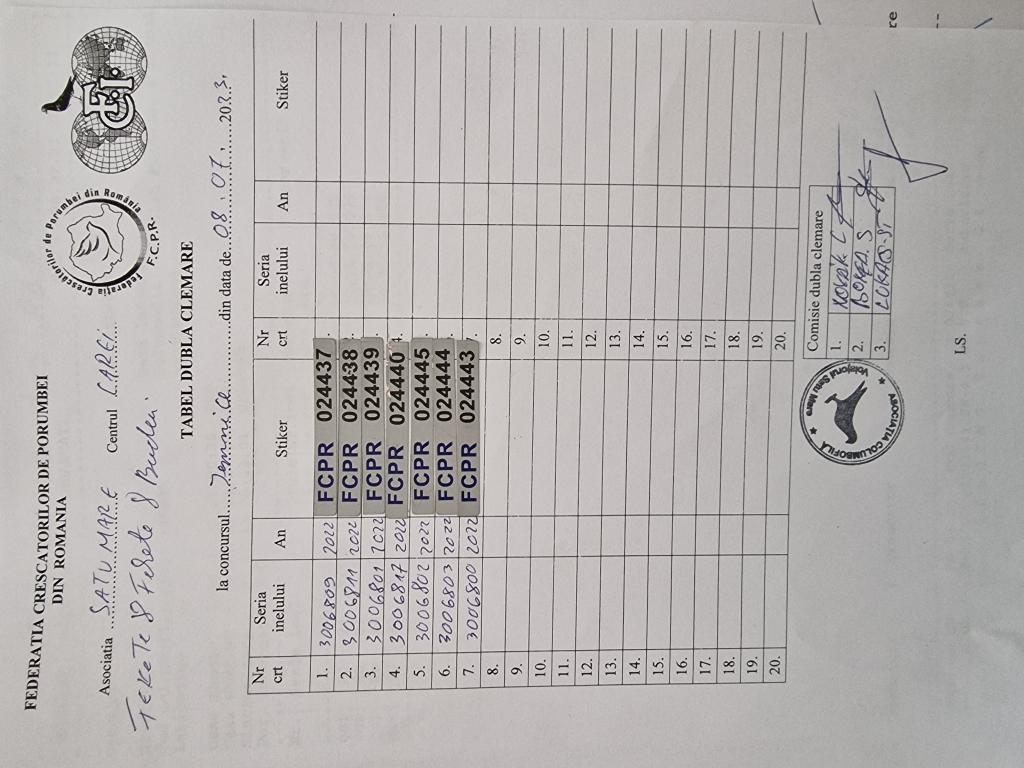 FEDERATIA CRESCATORILOR DE PORUMBEI
DIN ROMANIA
Federatia Crescatorilor de Porumbei din România
F.C.P.R.
FCI
Asociatia ...SATU MARE Centrul CAREI
TEKETE & Fekete & Buden.
TABEL DUBLA CLEMARE
la concursul.....Jemnice..........din data de...08.07.....2023.
Nr crt Seria inelului An Stiker Nr crt Seria inelului An Stiker
1. 3006809 2022 FCPR 024437 1.
2. 3006811 2022 FCPR 024438 2.
3. 3006801 2022 FCPR 024439 3.
4. 3006817 2022 FCPR 024440 4.
5. 3006802 2022 FCPR 024445 5.
6. 3006803 2022 FCPR 024444 6.
7. 3006800 2022 FCPR 024443 7.
8. 8.
9. 9.
10. 10.
11. 11.
12. 12.
13. 13.
14. 14.
15. 15.
16. 16.
17. 17.
18. 18.
19. 19.
20. 20.
ASOCIATIA COLUMBOFILĂ
Voiajorul Satu Mare
Comisie dubla clemare
1. Novak C
2. S
3.
LS.
re